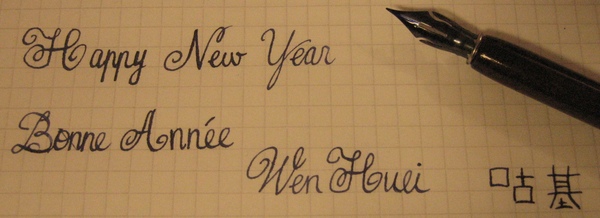 Happy New Year
Bonne Année
Wen Huei 咕基